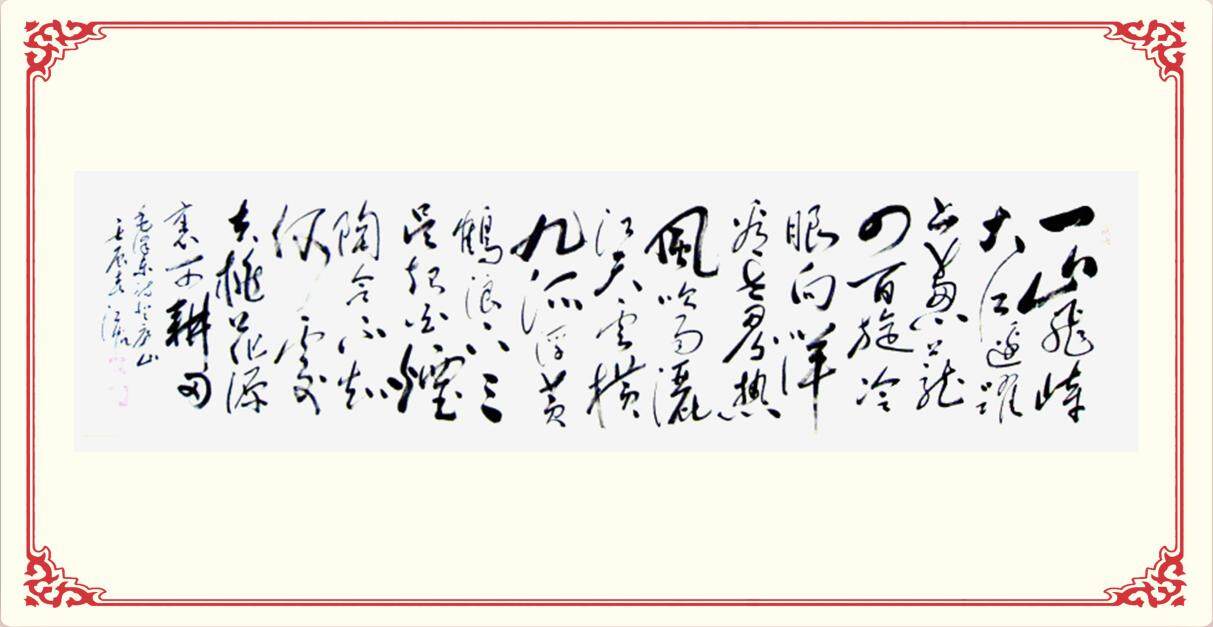 一山飛峙
大江邊躍
上葱蘢
四百旋冷
眼向洋
看世界热
風吹雨灑
江天雲横
九派浮黄
鶴浪下三
吴起白煙
陶令不知
何處
去桃花源
裏可耕田
毛泽东诗登庐山
壬辰春